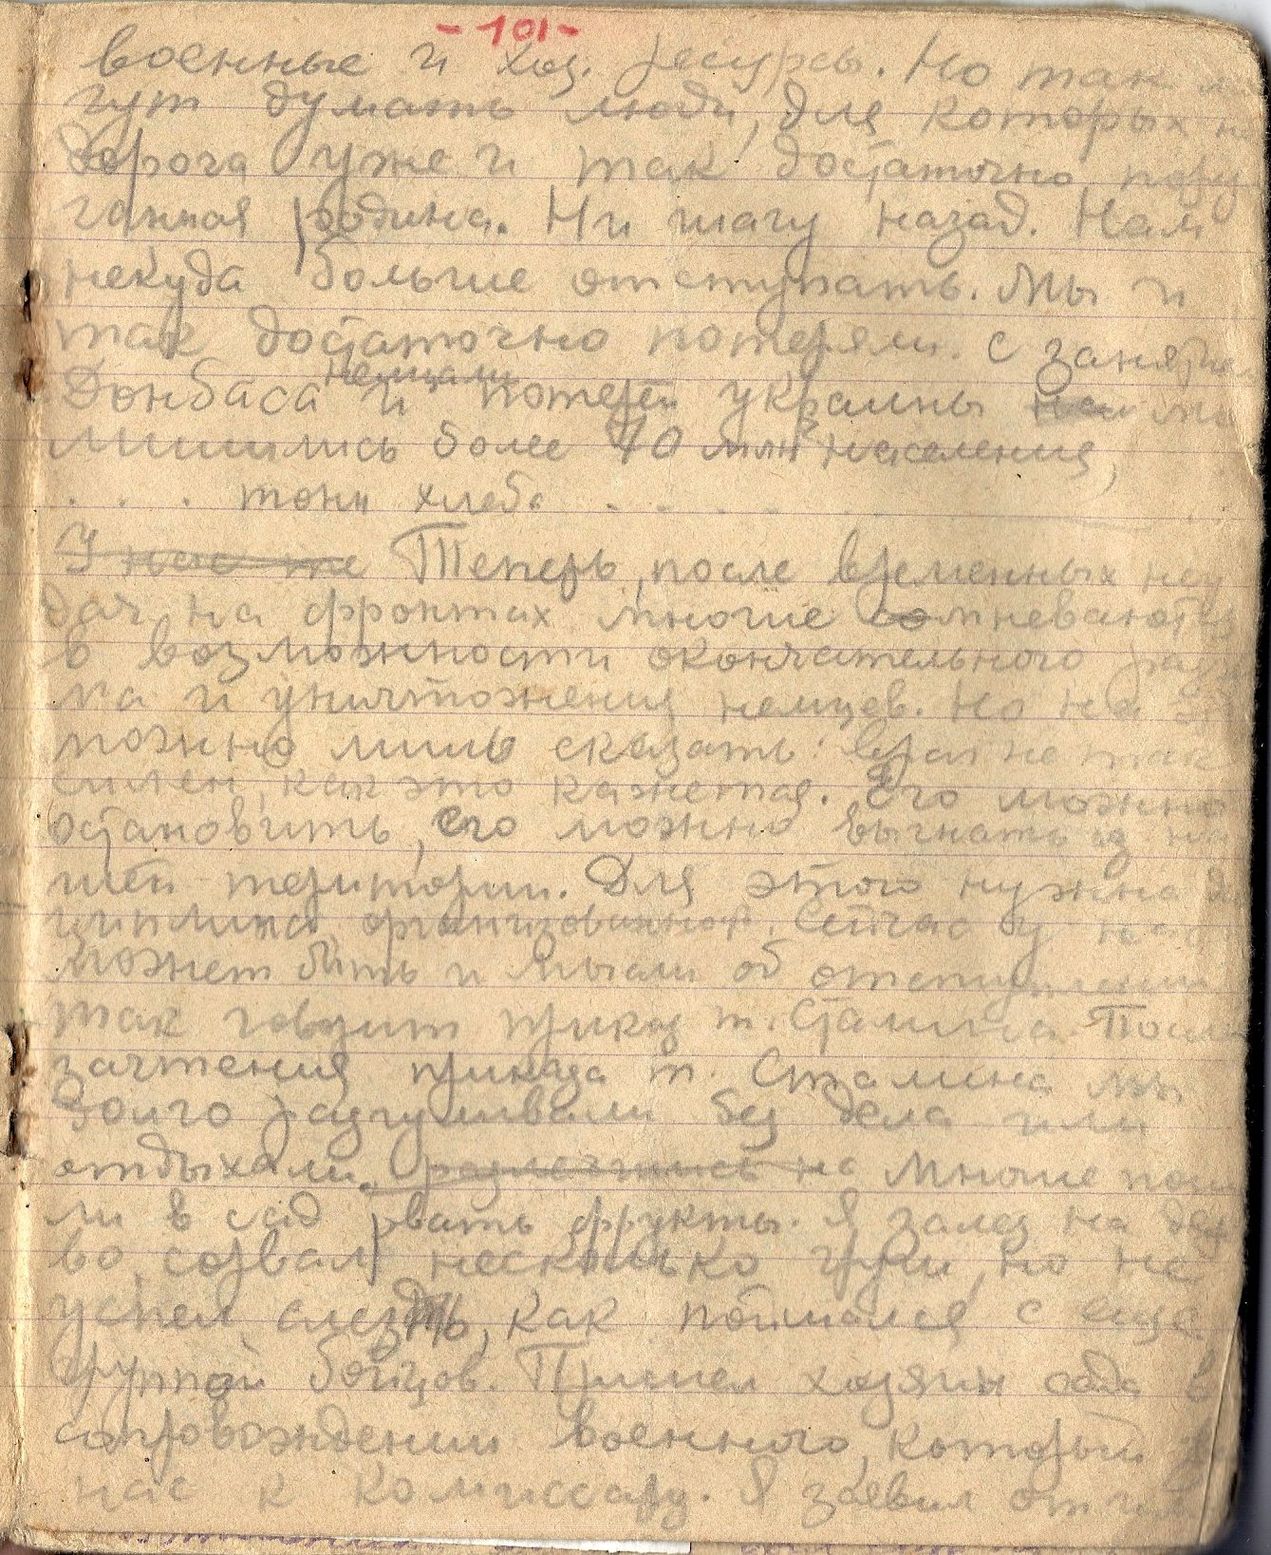 - 101 -
военные и хоз. ресурсы. Но так м
гут думать люди, для которых н
дорога уже и так достаточно пору
ганная родина. Ни шагу назад. Нам
некуда больше отступать. Мы и
так достаточно потеряли. С заняти
немцами
Донбаса и потерей украины на мы
лишились более 70 млн населения,
. . . тонн хлеба . . . . .
У нас же Теперь, после временных неу
дач на фронтах многие сомневаются
в возможности окончательного разг
ма и уничтожения немцев. Но на
можно лишь сказать: враг не так
силен, как это кажется. Его можно
остановить, его можно выгнать из на
шей територии. Для этого нужна ди
циплина, организованност. Сейчас у не
может быть и мысли об отступлении
так говорит приказ т. Сталина. После
зачтения приказа т. Сталина мы
долго разгуливали без дела или
отдыхали. разлегшись на Многие пош
ли в сад рвать фрукты. Я залез на дер
во, сорвал несколько груш, но не
успел слездть, как поймался с еще
группой бойцов. Пришел хозяин сада в
сопровождении военного, который
нас к комиссару. Я заявил